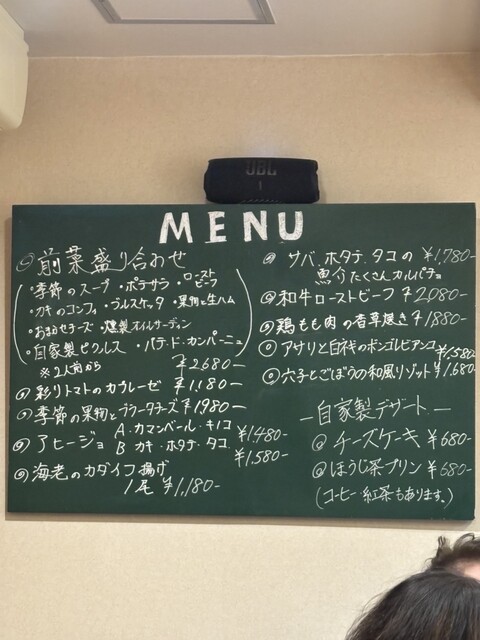 JBL
MENU
前菜盛り合わせ
・季節のスープ ・ポテサラ ・ローストビーフ
・カキのコンフィ ・ブルスケッタ ・果物と生ハム
・おまかせチーズ ・燻製オイルサーディン
・自家製ピクルス ・パテ・ド・カンパーニュ
※2人前から ¥2680-
彩りトマトのカプレーゼ ¥1.180-
季節の果物とブラータチーズ ¥1980-
アヒージョ A.カマンベール・キノコ ¥1480-
B カキ・ホタテ・タコ ¥1.580-
海老のカダイフ揚げ
1尾 ¥1,180-
サバ・ホタテ・タコの ¥1,780-
魚介たくさんカルパチョ
和牛ローストビーフ ¥2080-
鶏もも肉の香草焼き ¥1880-
アサリと白ネギのボンゴレビアンコ ¥1.580-
穴子とごぼうの和風リゾット ¥1.680-
-自家製デザート-
チーズケーキ ¥680-
ほうじ茶プリン ¥680-
(コーヒー・紅茶もあります。)